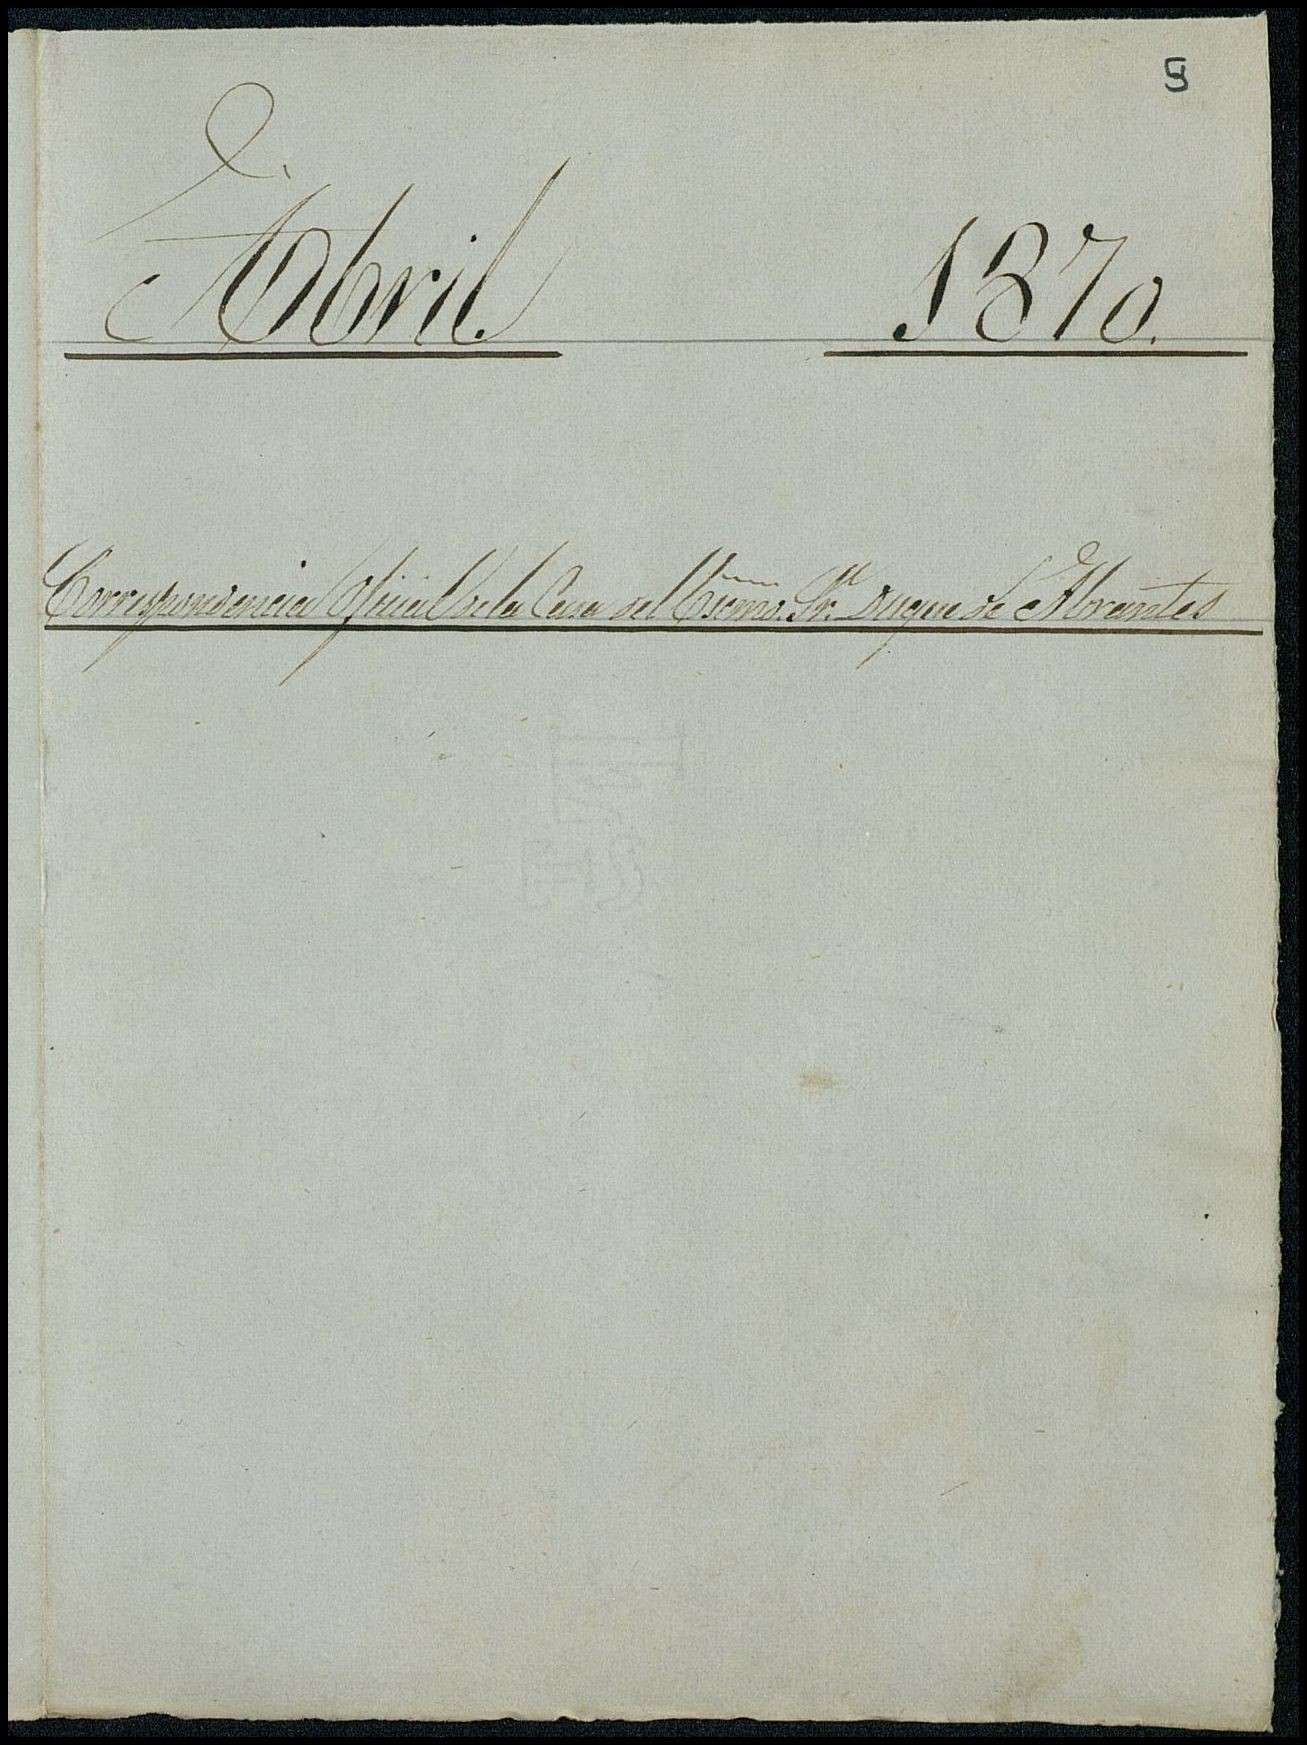 5
Abril 1870.
Correspondencia Oficial de la Casa del Excmo. Sr. Duque de Abrantes